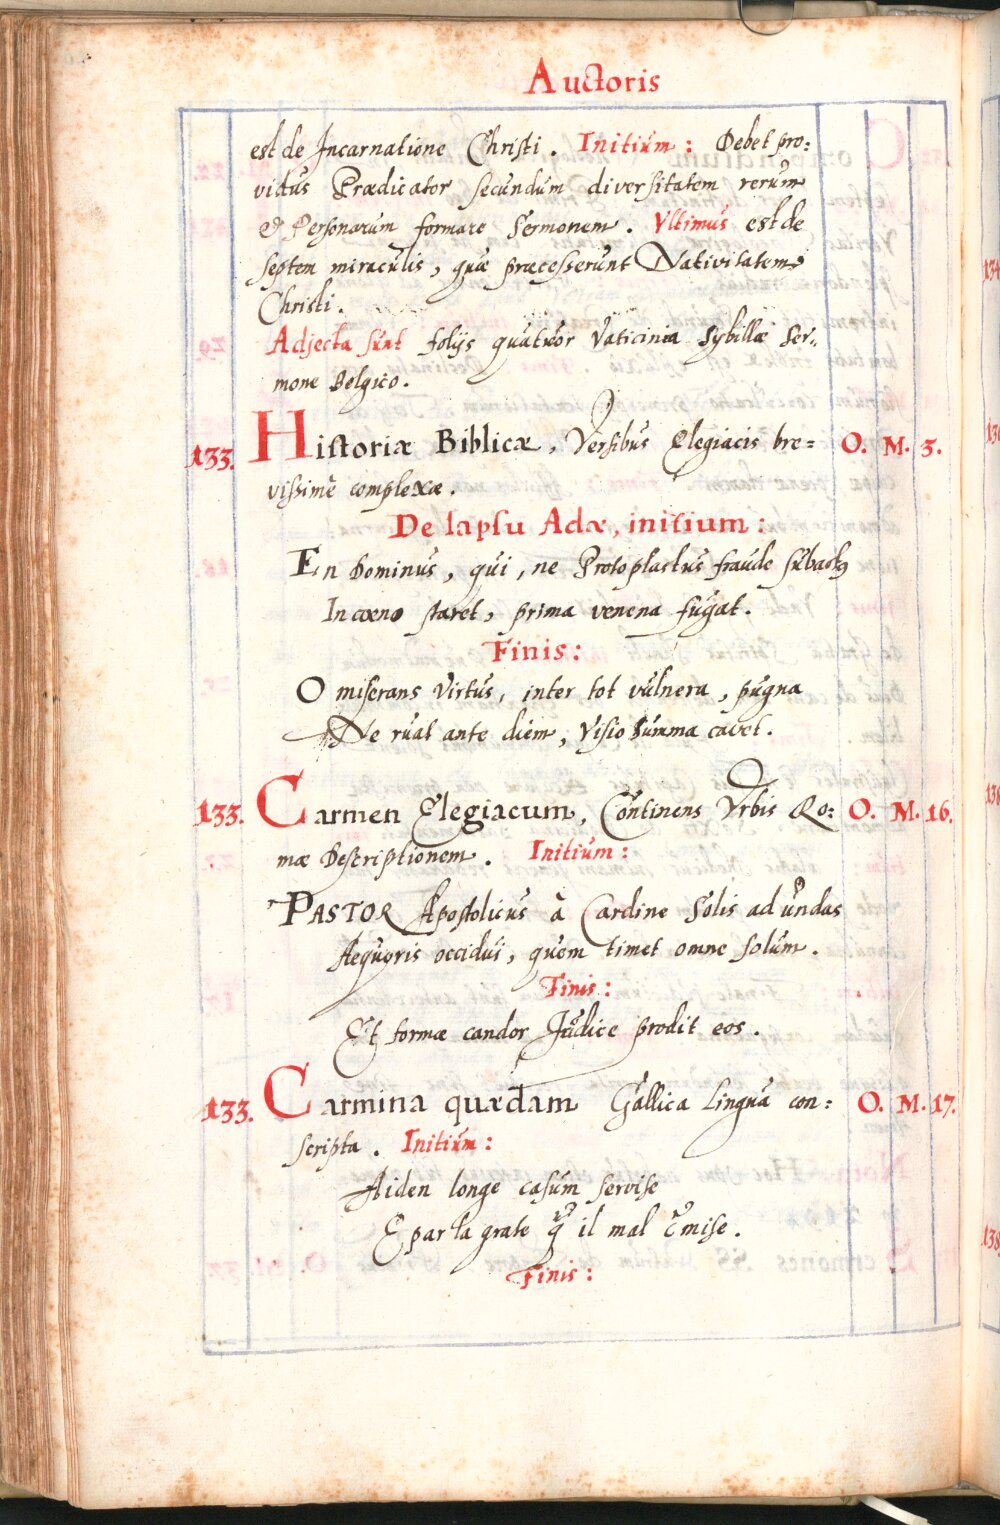 Auctoris
est de Incarnatione Christi. Initium: Debet pro:
vidus Prædicator secundum diversitatem rerum
& Personarum formare Sermonem. Vltimus est de
septem miraculis, quæ præcesserunt Nativitatem
Christi.
Adjecta sunt folijs quatuor Vaticinia Sybillæ Ser-
mone Belgico.
133. Historiæ Biblicæ, Versibus Elegiacis bre= O. M. 3.
vissimè complexæ.
De lapsu Adæ, initium:
En Dominus, qui, ne Protoplastus fraude subactus
In cœno staret, prima venena fugat.
Finis:
O miserans Virtus, inter tot vulnera, pugna
Ne ruat ante diem, Visio Summa cavet.
133. Carmen Elegiacum, Continens Vrbis Ro: O. M. 16.
mæ Descriptionem. Initium:
PASTOR Apostolicus à Cardine Solis ad undas
Aequoris occidui, quem timet omne solum.
Finis:
Et formæ candor Judice prodit eos.
133. Carmina quædam Gallica Lingua con: O. M. 17.
scripta. Initium:
Aiden longe casum servise
E par la grate q̃ il mal c̃mise.
Finis: